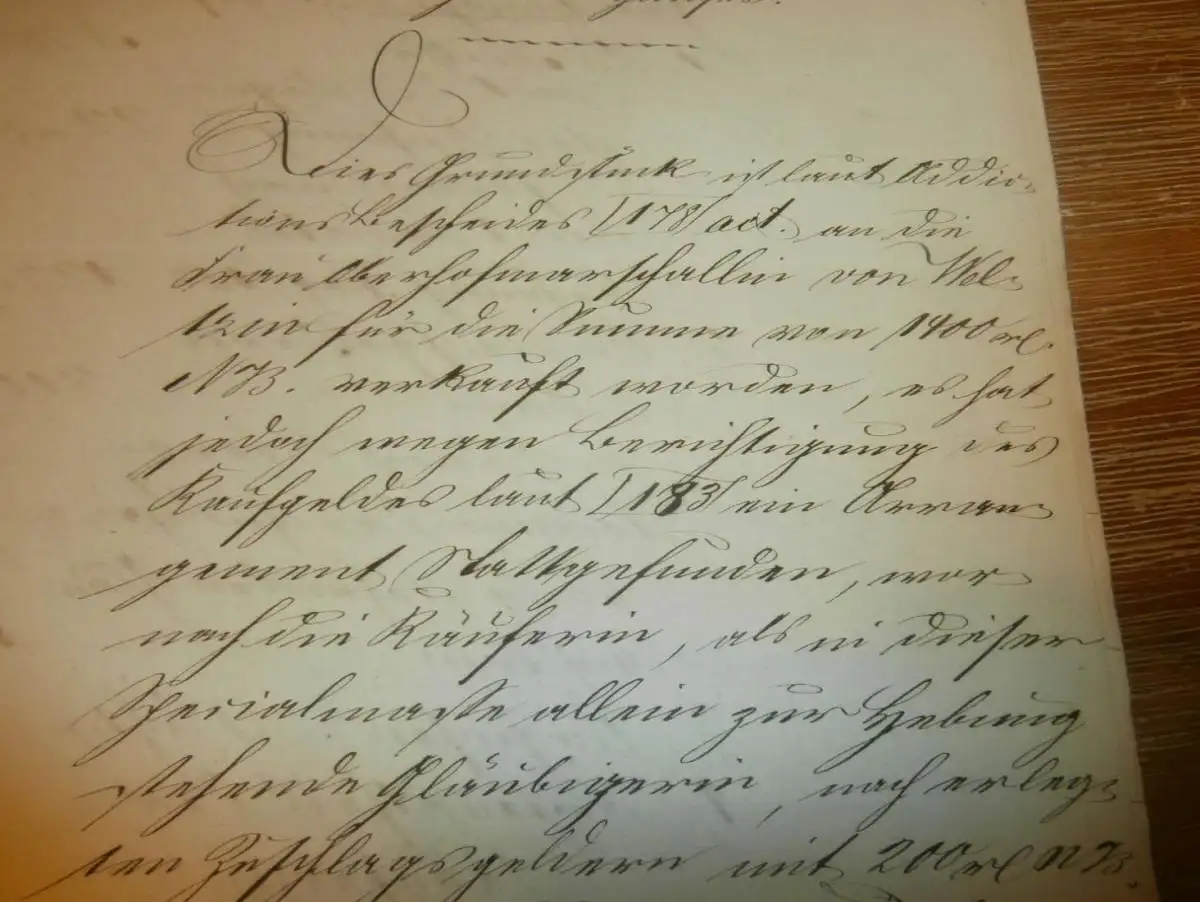 Dies Grundstück ist laut Addic-
tions Bescheides [178] act. an die
Frau Oberhofmarschallin von Wel-
tzin für die Summe von 1400 rl.
N ⅔. verkauft worden, es hat
jedoch wegen Berichtigung des
Kaufgeldes laut [183] ein Arran-
gement Stattgefunden, wor
nach die Käuferin, als in dieser
Specialmasse allein zur Hebung
stehende Gläubigerin, nach erleg-
ten Zuschlagsgeldern mit 200 rl N ⅔.